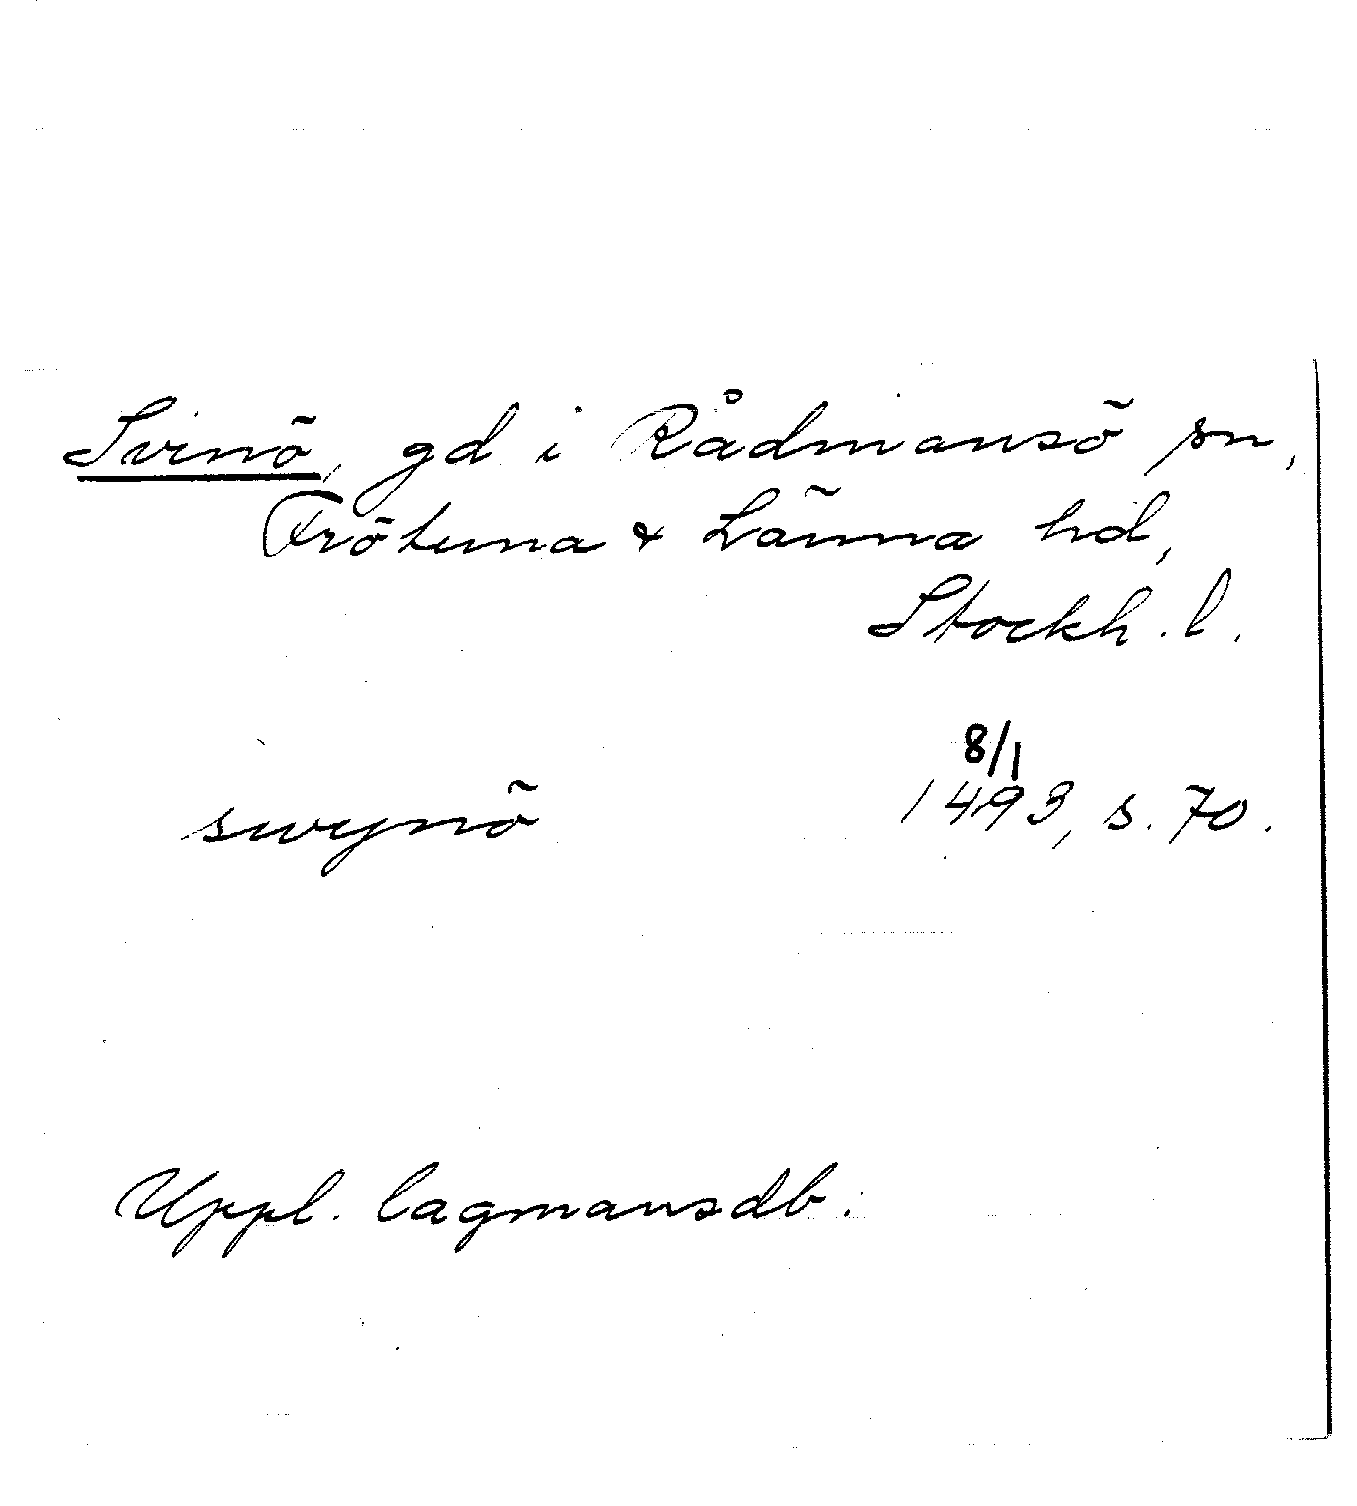 Svinö, gd i Rådmansö sn,
Frötuna & Länna hd,
Stockh. l.
8/1
swynö 1493, s. 70.
Uppl. lagmansdb.